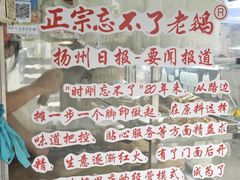 正宗忘不了老鹅®
扬州日报-要闻报道
“时刻忘不了”20年来,从路边
摊一步一个脚印做起,在原料选择
味道把控、贴心服务等方面精益求
精,生意逐渐红火,有了门面后开
经营模式,成为了